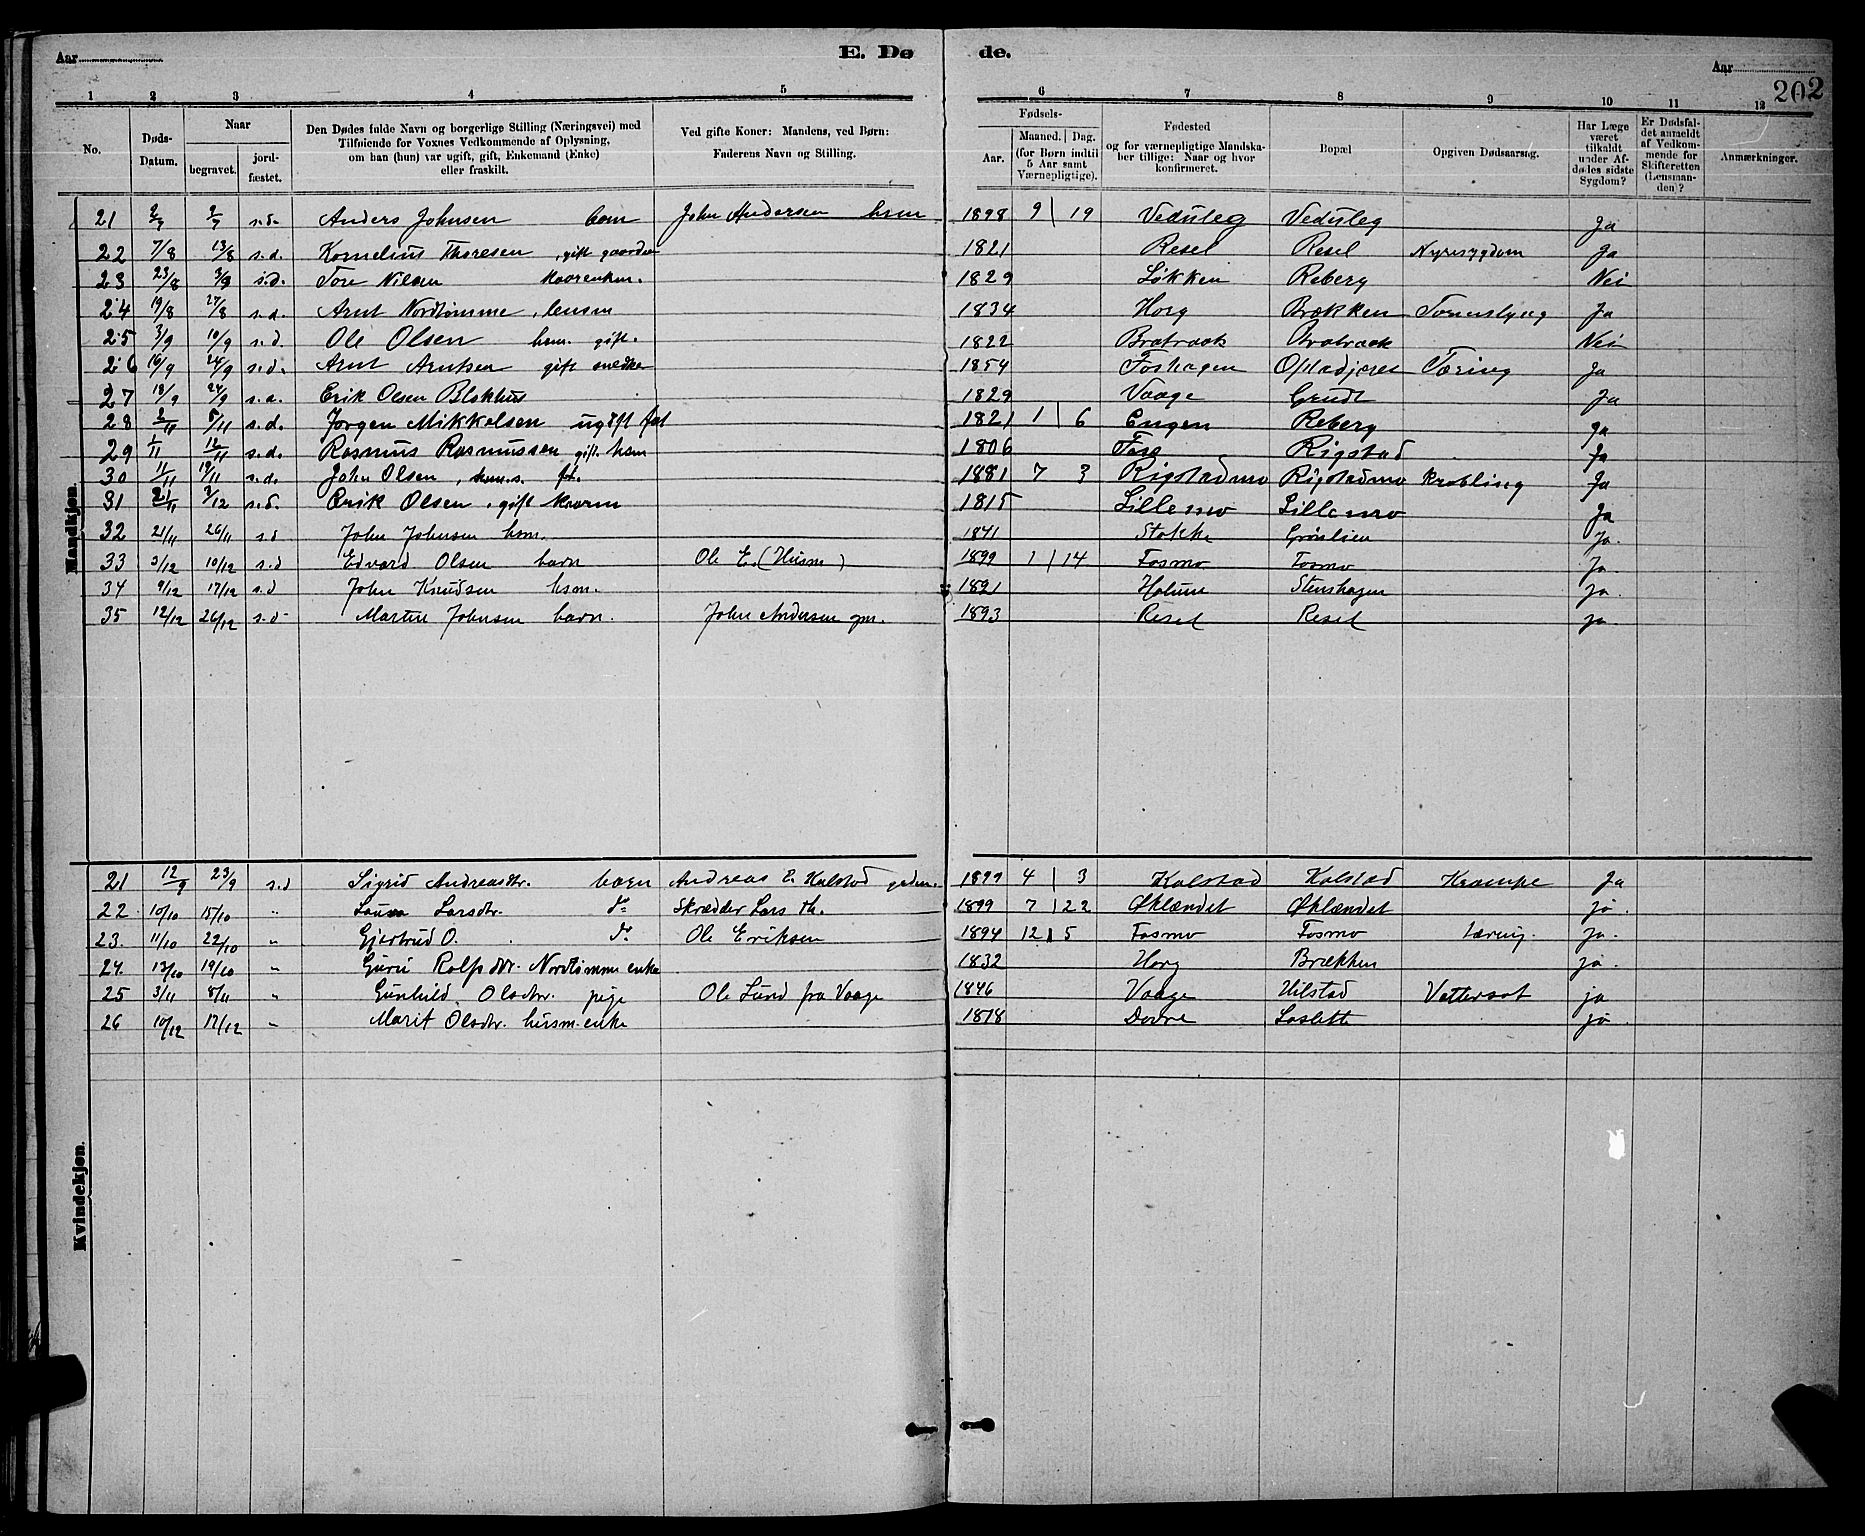 Aar E. Dø de. Aar 202
1 2 3 4 5 6 7 8 9 10 11 12
No. Døds-Datum. Naar begravet. jordfæstet. Den Dødes fulde Navn og borgerlige Stilling (Næringsvei) med Tilføiende for Voxnes Vedkommende af Oplysning, om han (hun) var ugift, gift, Enkemand (Enke) eller fraskilt. Ved gifte Koner: Mandens, ved Børn: Faderens Navn og Stilling. Fødsels- Aar. Maaned. Dag. (for Børn indtil 5 Aar samt Værnepligtige). Fødested og for værnepligtige Mandskaber tillige: Naar og hvor konfirmeret. Bopæl Opgiven Dødsaarsag. Har Læge været tilkaldt under Afdødes sidste Sygdom? Er Dødsfaldet anmeldt af Vedkommende for Skifteretten (Lensmanden)? Anmærkninger.
Mandkjøn.
21 s.d. Anders Johnsen barn John Andersen hsm 1898 9 | 19 Veduleg Veduleg Ja
22 7/8 13/8 s.d. Kornelius Thoresen, gift 1821 Resel Resel Nyresygdom Ja
23 23/8 3/9 s.d. Tore Nilsen 1829 Løkken Reberg Nei
24 19/8 27/8 s.d. Arnt Nordtømme, lensm 1834 Horg Brækken Ja
25 3/9 10/9 s.d. Ole Olsen hsm. gift. 1822 Bratraak Bratraak Nei
26 16/9 24/9 s.d. Arnt Arntsen gift snedker 1854 Foshagen Tæring Ja
27 18/9 24/9 s.d. Erik Olsen Blokhus 1829 Vaage Grudt Ja
28 2/11 5/11 s.d. Jørgen Mikkelsen ugift fat 1821 1 | 6 Engen Reberg Ja
29 1/11 12/11 s.d. Rasmus Rasmussen gift. hsm 1806 Foss Rigstad Ja
30 11/11 19/11 s.d. John Olsen, hsm.s. 1881 7 3 Rigstadmo Rigstadmo Ja
31 21/11 3/12 s.d. Erik Olsen, gift 1815 Lillemo Lillemo Ja
32 21/11 26/11 s.d John Johnsen hsm. 1841 Stokke Grønlien Ja.
33 3/12 10/12 s.d Edvard Olsen barn Ole E. (Husm) 1899 1 | 14 Fosmo Fosmo Ja.
34 9/12 17/12 s.d John Knudsen hsm. 1821 Holum Stenshagen Ja.
35 12/12 26/12 s.d Martin Johnsen barn. John Andersen gm. 1893 Resel Resel ja.
Kvindekjøn.
21 12/9 23/9 s.d Sigrid Andreasdtr. barn Andreas E. Kalstad grdm. 1899 4 | 3 Kalstad Kalstad Krampe Ja
22 10/10 15/10 " Laura Larsdtr. do Skrædder Lars Th. 1899 7 | 22 Øklændet Øklændet ja.
23. 11/10 22/10 " Gjertrud O. do Ole Eriksen 1894 12 | 5 Fosmo Fosmo tæring. Ja.
24. 13/10 19/10 " Guru Rolfsdtr. Nordtømme enke 1832 Horg Brækken ja.
25 3/11 8/11 " Gunhild. Olsdtr. pige Ole Lund fra Vaage 1846 Vaage Hilstad Vattersot ja
26 10/12 17/12 " Marit Olsdtr. husm. enke 1818 Dovre ja.